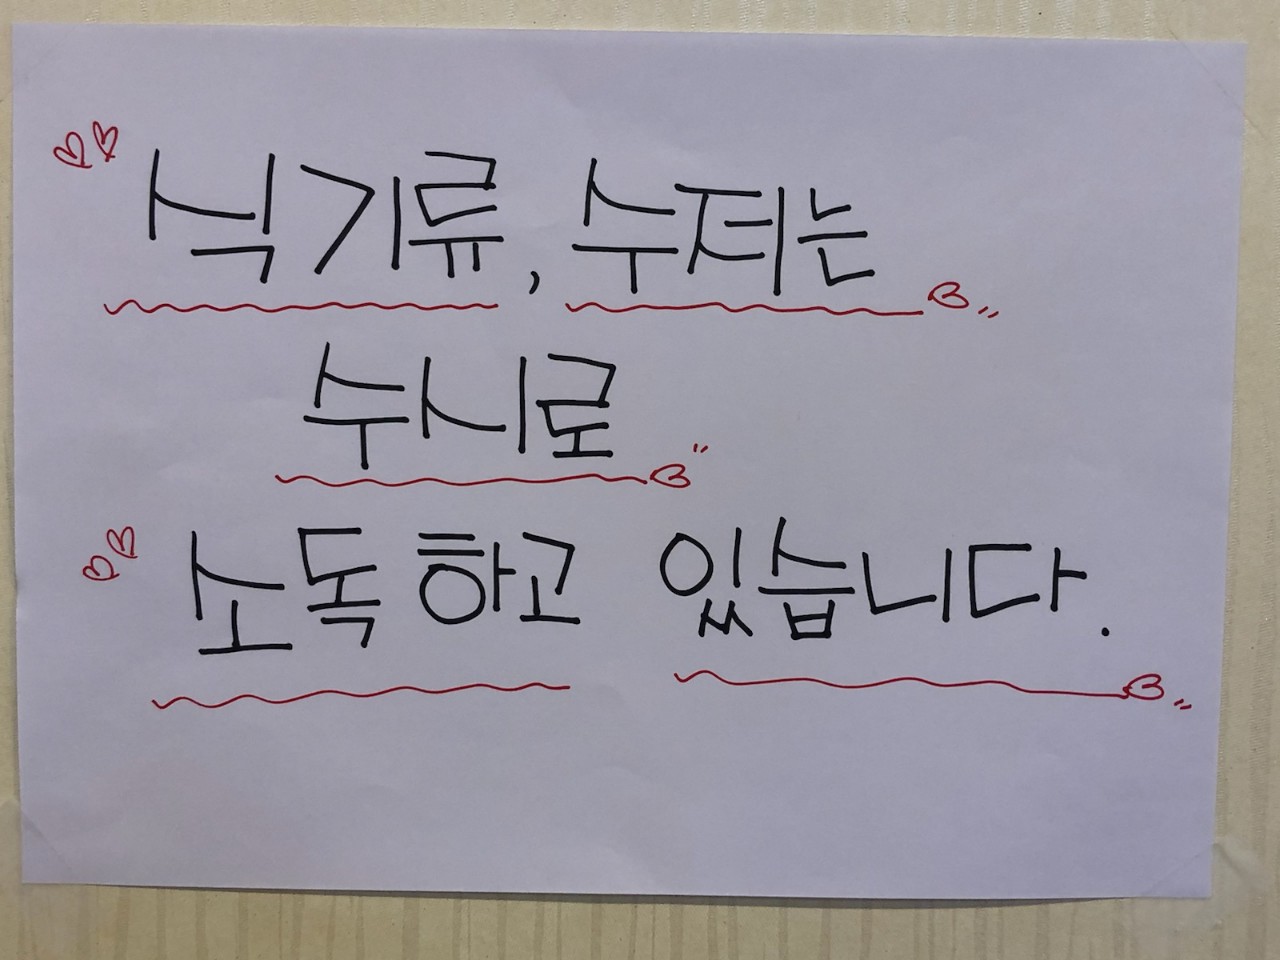 식기류, 수저는
수시로
소독하고 있습니다.